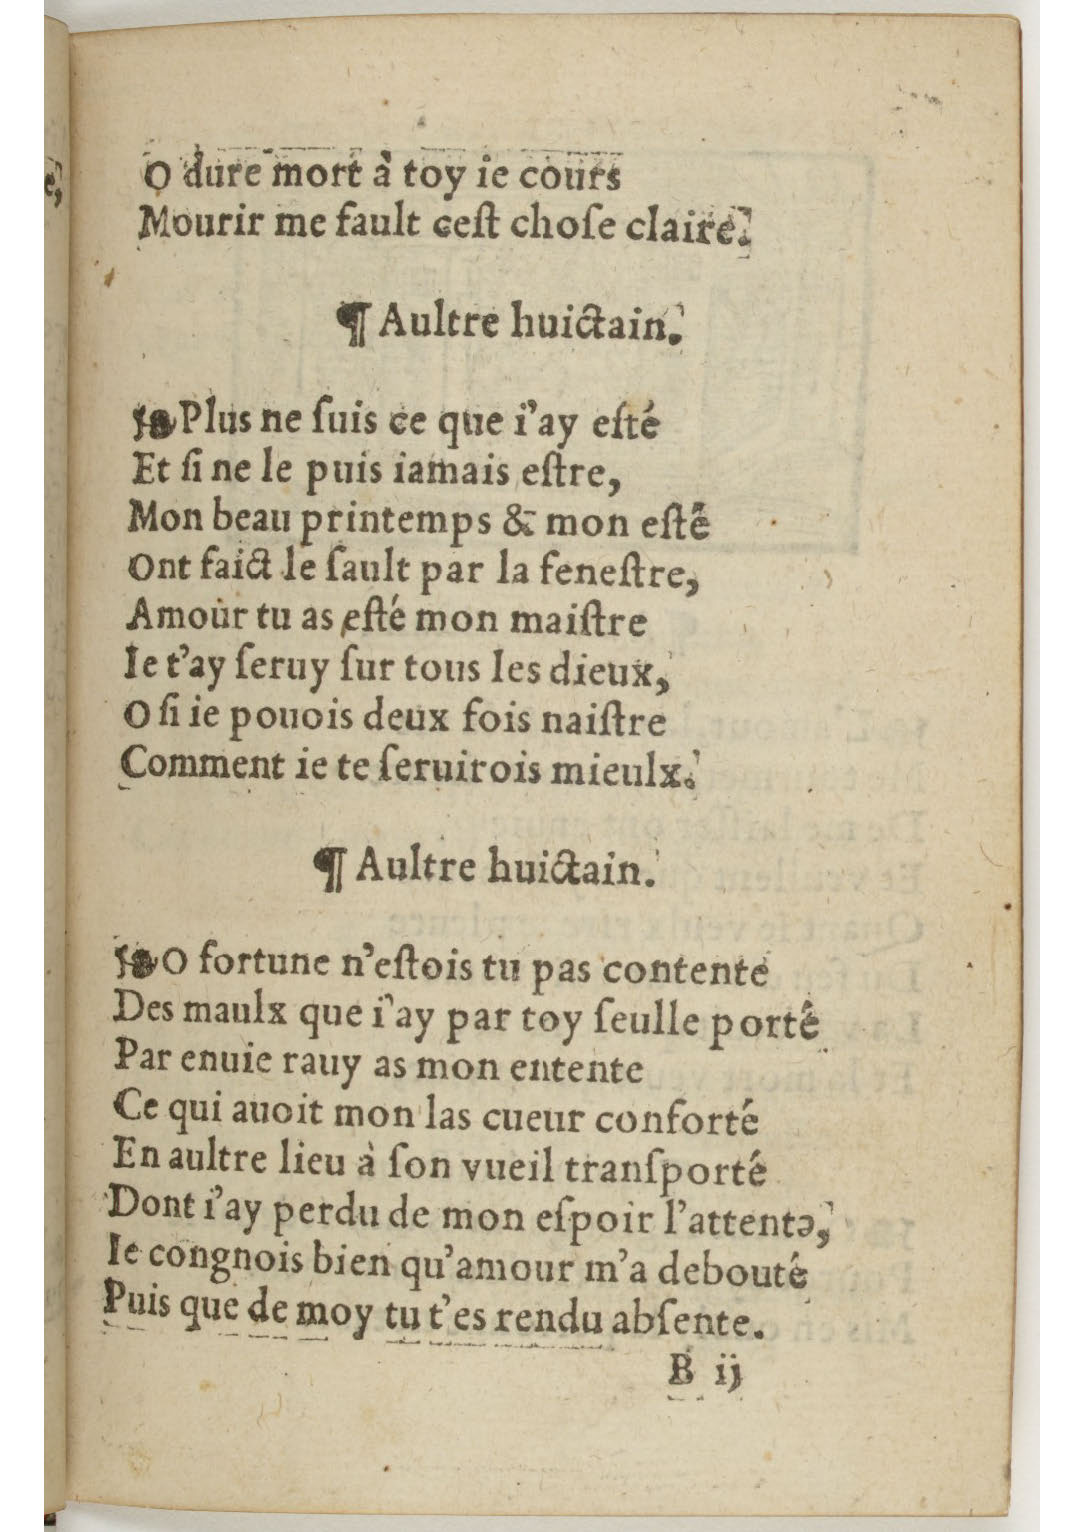 O dure mort à toy ie cours
Mourir me fault ceſt choſe claire.
¶ Aultre huictain.
Plus ne ſuis ce que i'ay eſté
Et ſi ne le puis iamais eſtre,
Mon beau printemps & mon eſté
Ont faict le ſault par la feneſtre,
Amour tu as eſté mon maiſtre
Ie t'ay ſeruy ſur tous les dieux,
O ſi ie pouois deux fois naiſtre
Comment ie te ſeruirois mieulx.
¶ Aultre huictain.
O fortune n'eſtois tu pas contente
Des maulx que i'ay par toy ſeulle porté
Par enuie rauy as mon entente
Ce qui auoit mon las cueur conforté
En aultre lieu à ſon vueil tranſporté
Dont i'ay perdu de mon eſpoir l'attentə,
Ie congnois bien qu'amour m'a debouté
Puis que de moy tu t'es rendu abſente.
B ij